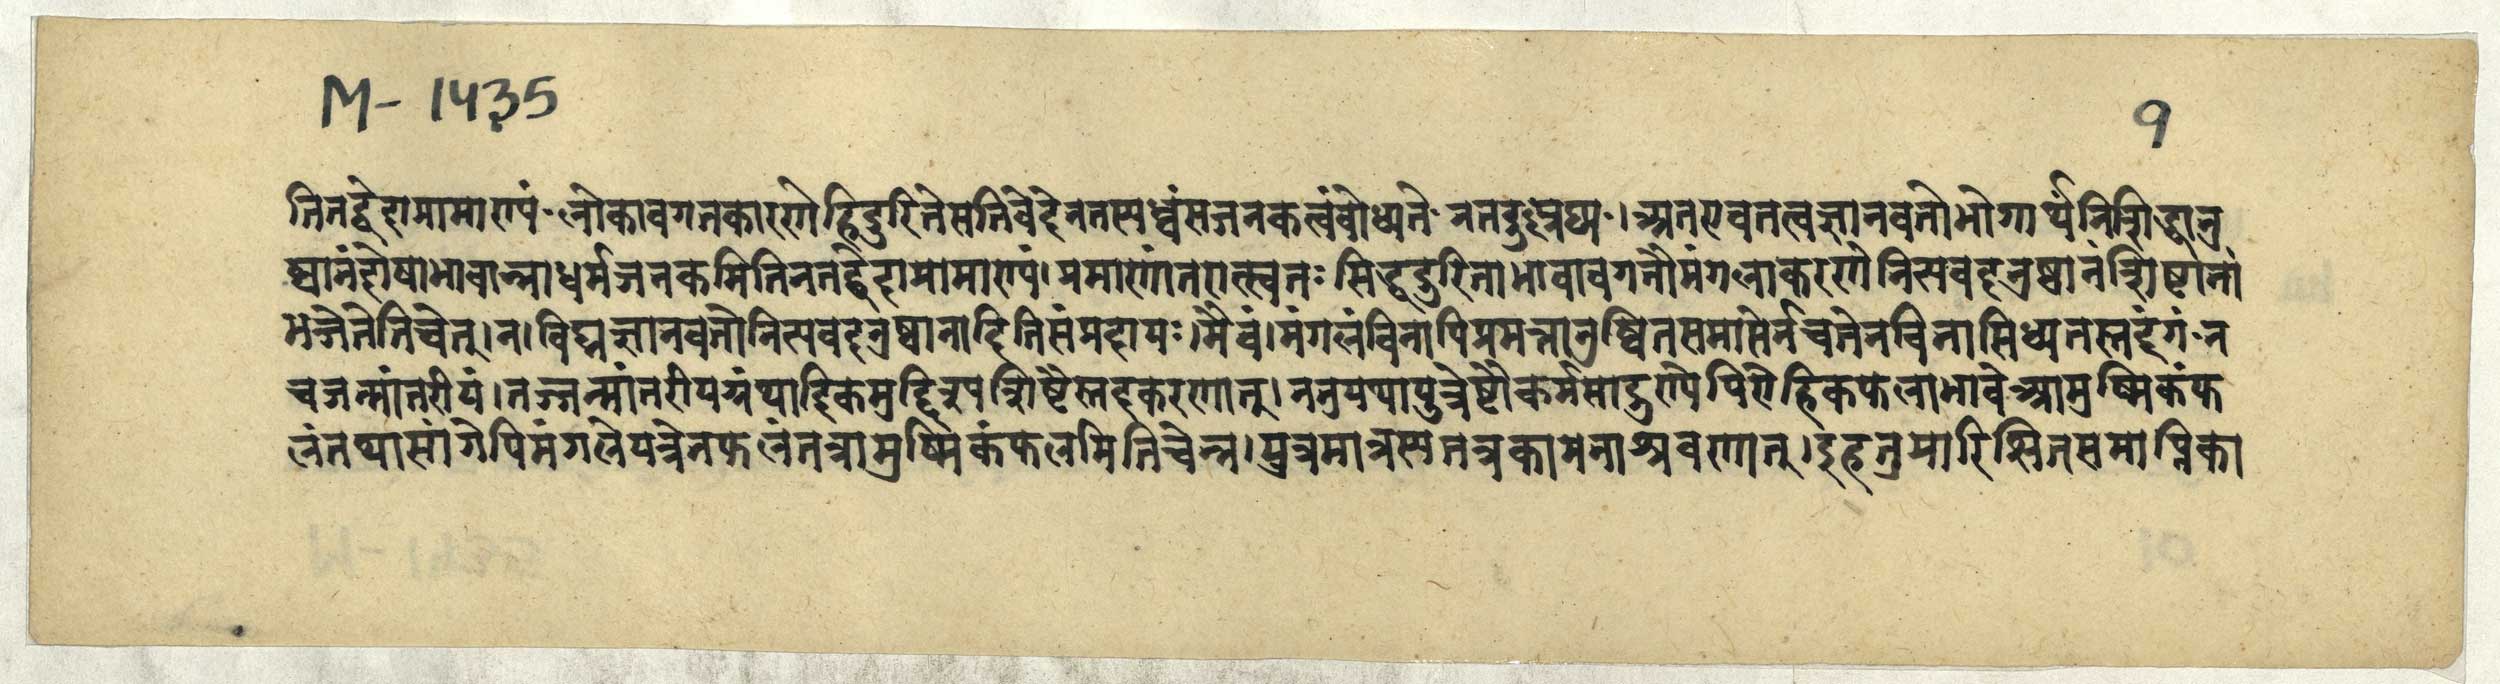 M- 1435
१
तितद्वेदाप्रामारापं. लोकावगतकारणेहिदुरितेसतिवेदेनतस्यध्वंसजनकत्वंबोध्यते. नतदुःत्रघ्य. । अतएवतत्वज्ञानवतोभोगार्थंनिषिद्धानु
ष्ठानंदोषाभावान्नाधर्मजनकमितिनतद्वेदाप्रामारापं। प्रमाणांतरात्स्वतः सिद्धदुरिताभावावगतौमंगलाकरणेनित्यवदनुष्ठानंशिष्टानां
भज्येतेतिचेत्। न। विघ्नज्ञानवतोनित्यवदनुष्ठानादितिसंप्रदायः। मैवं। मंगलंविनापिप्रमत्तानुष्ठितसमाप्तेर्नचतेनविनासिध्यतस्तदंगं. न
चजन्मांतरीयं। तज्जन्मांतरीयग्रंथादिकमुद्दिश्यशिष्टैस्तदकरणात्। ननुयथापुत्रेष्टौकर्मसाद्गुण्येपिऐहिकफलाभावेआमुष्मिकंफ
लंतथासांगेपिमंगलेयत्रेनफलंतत्रामुष्मिकंफलमितिचेन्न। पुत्रमात्रस्यतत्रकामनाश्रवणात्। इहतुप्रारिप्सितसमाप्तिका